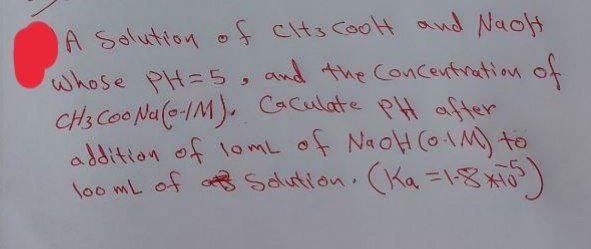 A Solution of CH3COOH and NaOH
whose PH=5, and the Concentration of
CH3COONa(0.1M). Caculate PH after
addition of 10mL of NaOH (0.1M) to
100 mL of Solution. (Ka =1.8×10^-5)